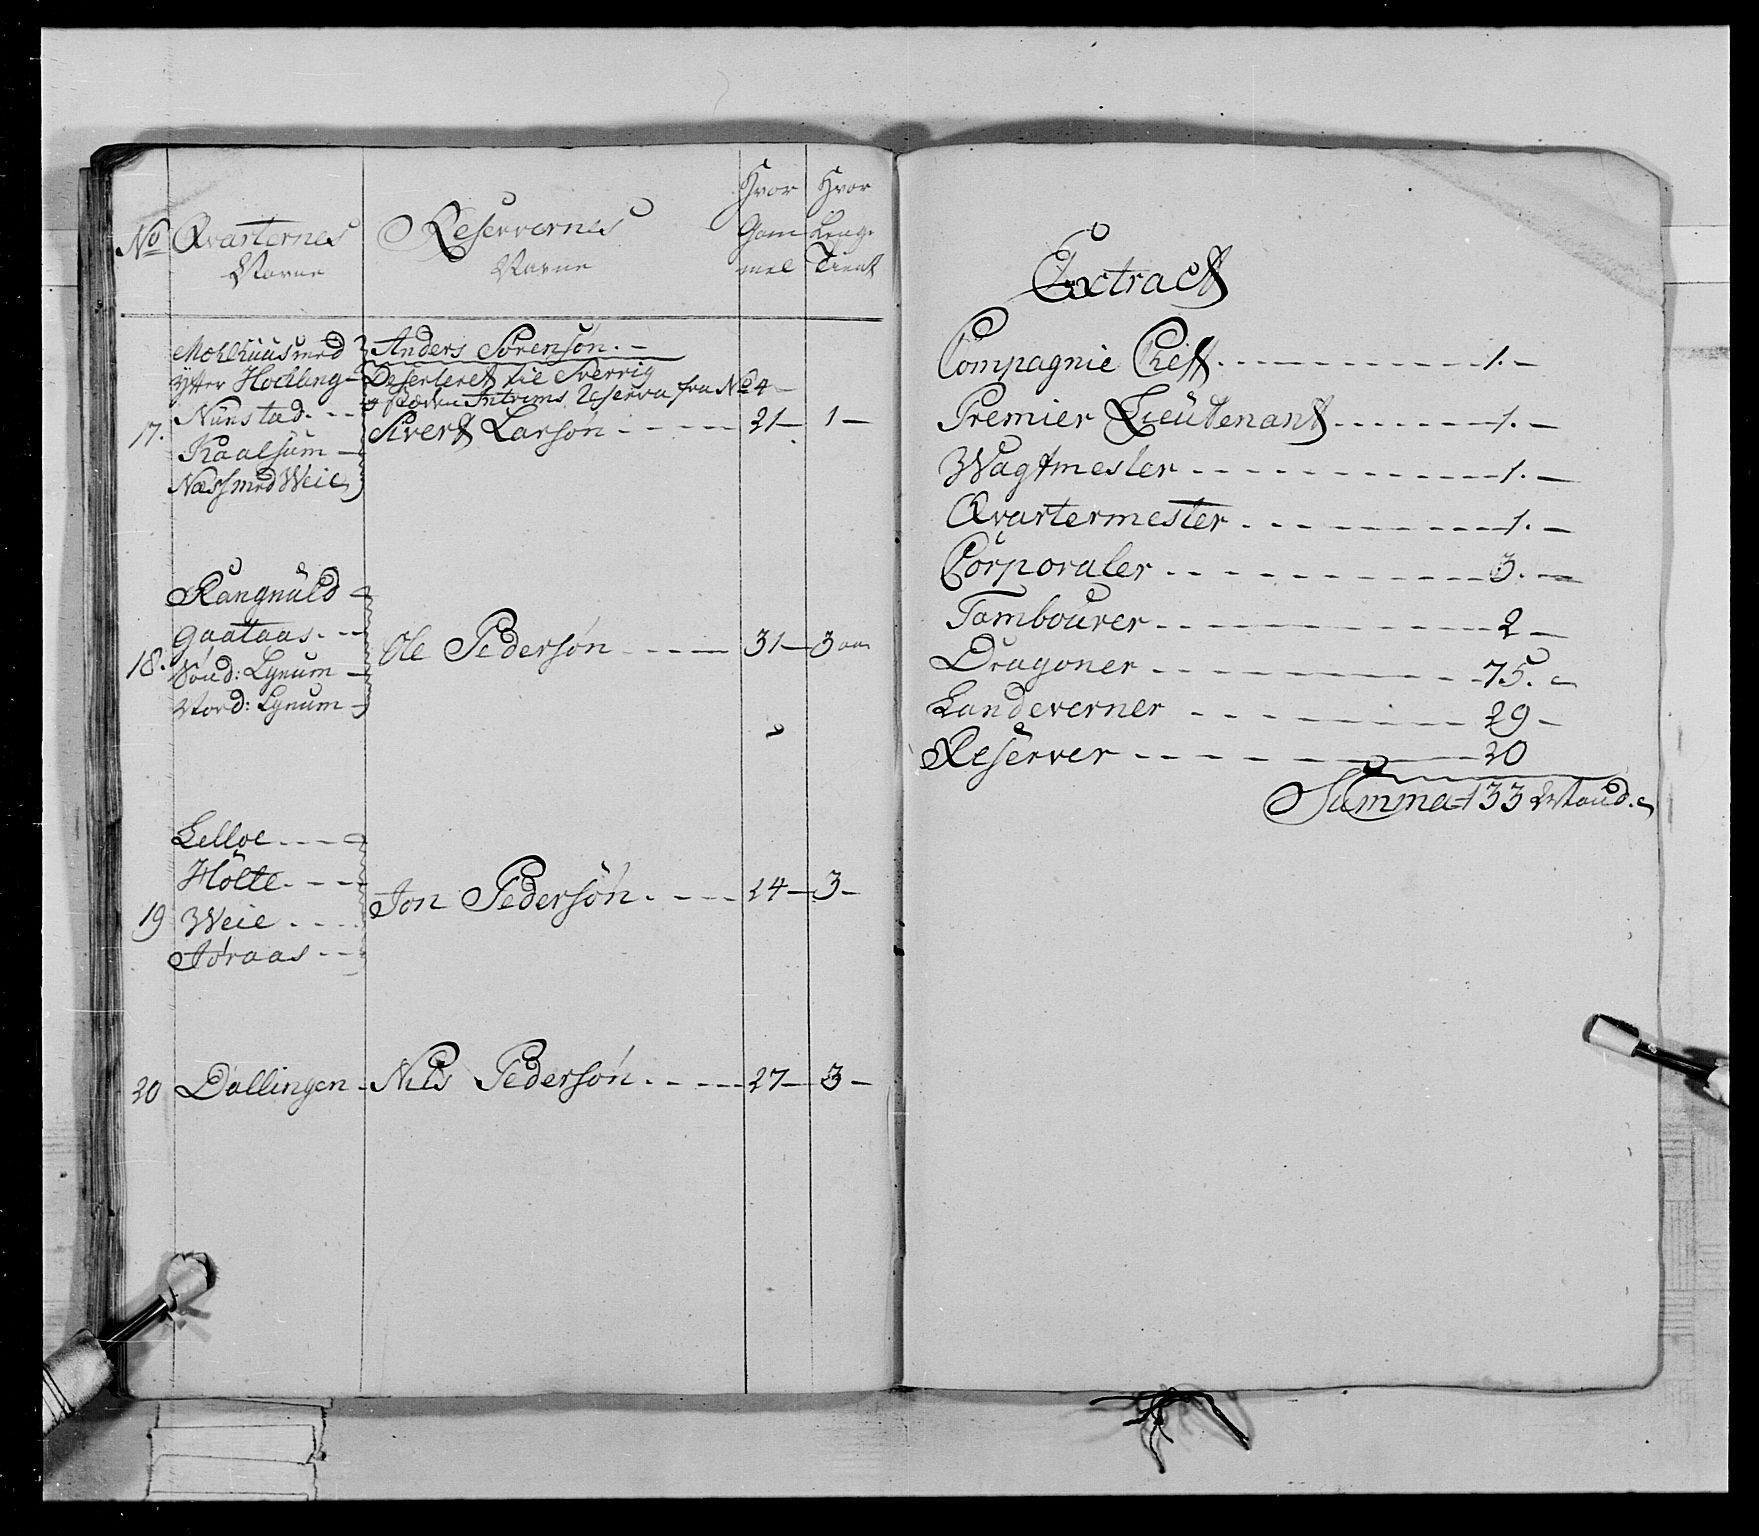 No Qvarternes Navne
Reservernes Navne
Hvor Gam mel
Hvor Leng. Tient
17.
Mælhuus med
Ytter Hoclling
Nunstad
Kaalsum
Næss med Weie
Anders Sørensøn
Deserteret til Sverrig
Intrims Reserva fra No 4
Sivert Larsøn 21 1
18.
Rangnuld
Gaataas
Sønd: Lynum
Nord: Lynum
Ole Pedersøn 31 3
19
Lelloe
Holte
Weie
Føraas
Jon Pedersøn 24 3
20 Døllingen Nils Pedersøn 27 3
Extract
Compagnie Cheff 1.
Premier Lieutenant 1.
Wagtmester 1.
Qvartermester 1.
Corporaler 3.
Tambourer 2
Dragoner 75.
Landeverner 29
Reserver 20
Summa 133 Mand.